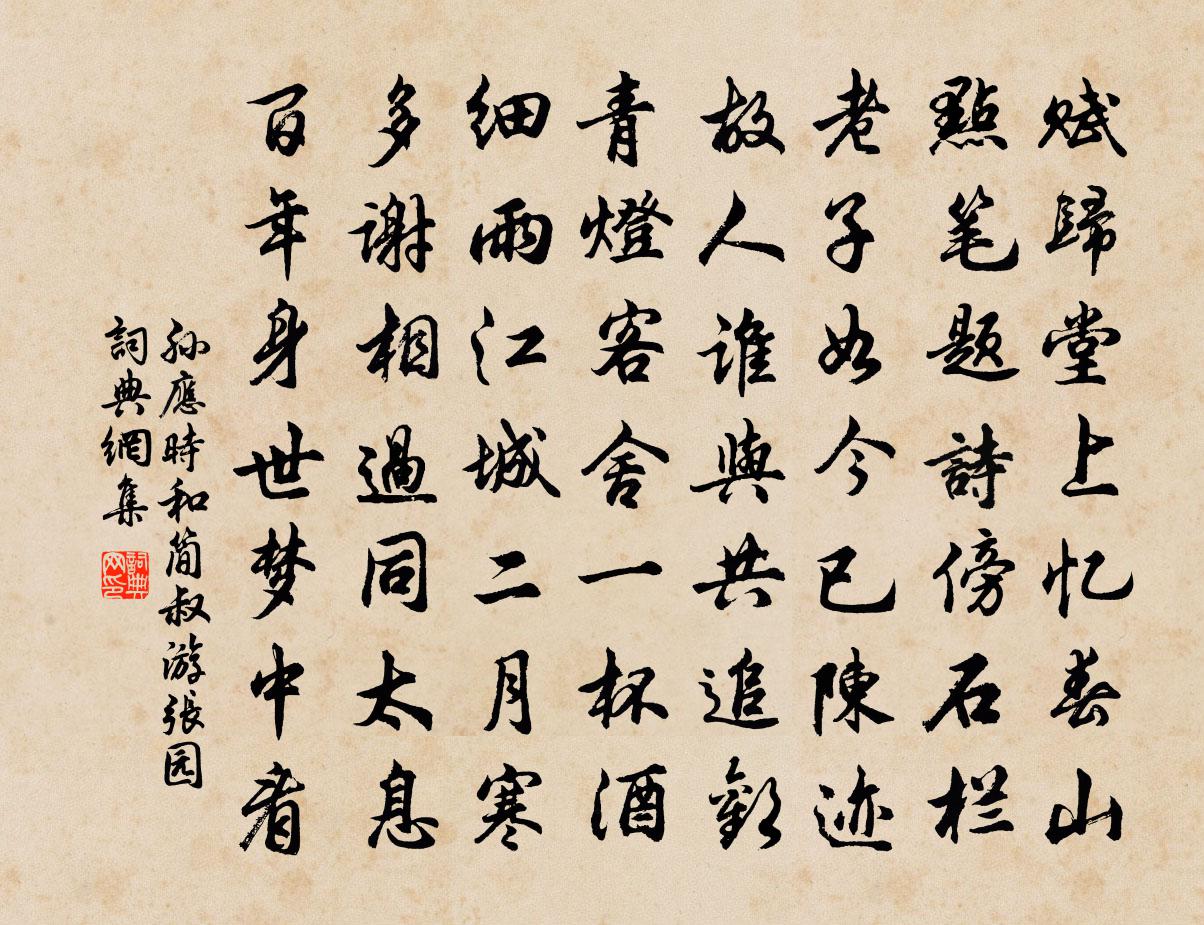 赋歸堂上忆春山
點笔题詩傍石栏
老子如今已陳迹
故人誰與共追歡
青燈客舍一杯酒
细雨江城二月寒
多谢相過同太息
百年身世梦中看
孙應時和简叔游張园
詞典網集
詞典网印